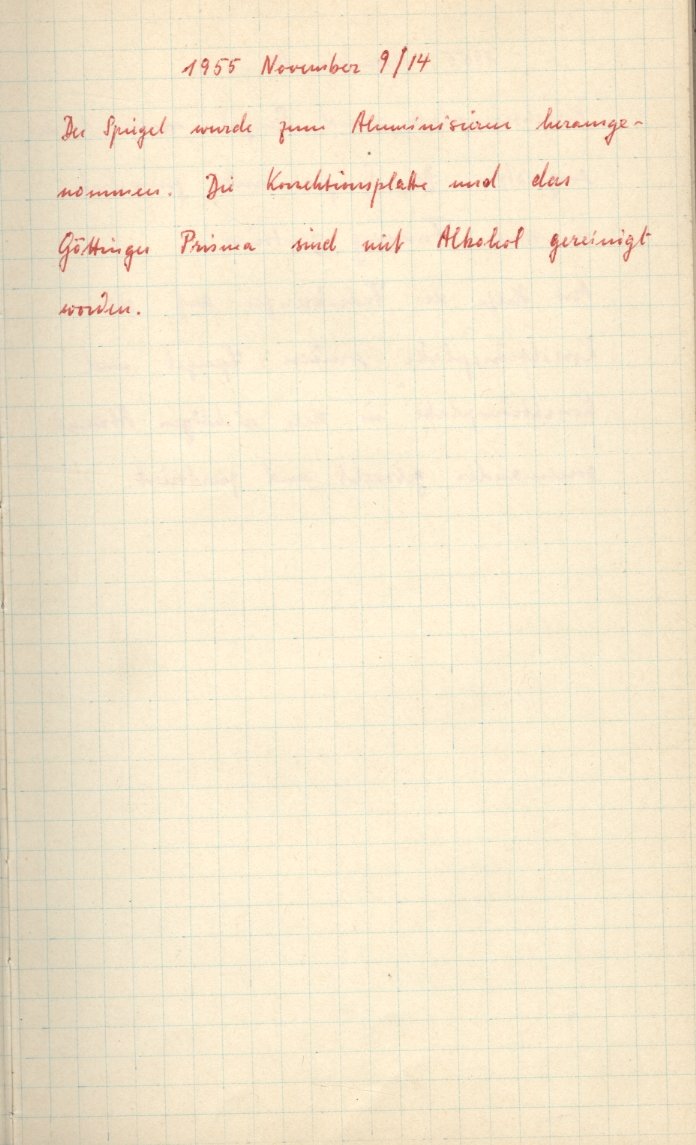 1955 November 9/14
Der Spiegel wurde zum Aluminisieren herausge-
nommen. Die Korrektionsplatte und das
Göttinger Prisma sind mit Alkohol gereinigt
worden.